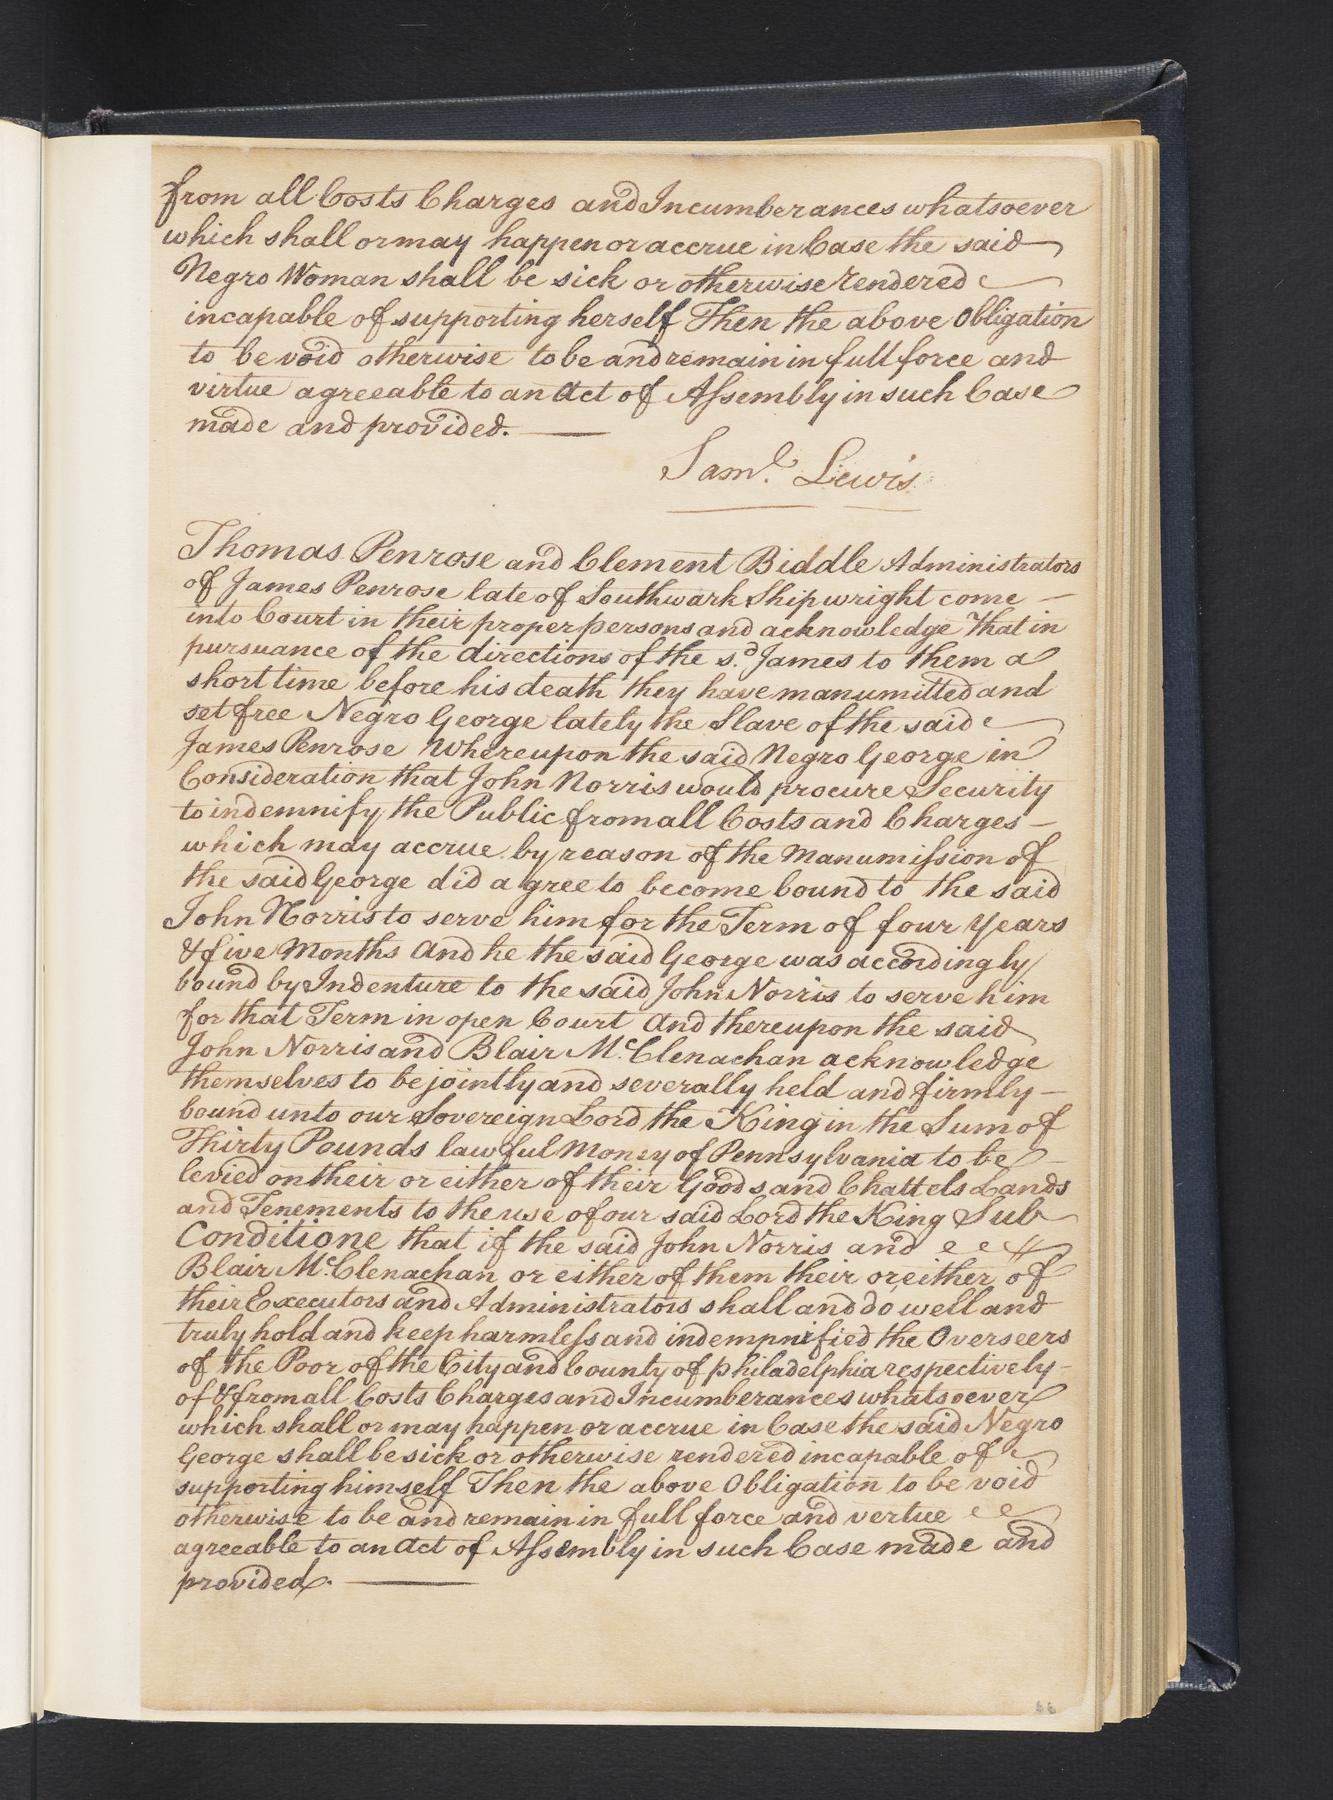 from all Costs Charges and Incumberances whatsoever
which shall or may happen or accrue in Case the said
Negro Woman shall be sick or otherwise rendered
incapable of supporting herself Then the above Obligation
to be void otherwise to be and remain in full force and
virtue agreeable to an Act of Assembly in such Case
made and provided.
Saml. Lewis
Thomas Penrose and Clement Biddle Administrators
of James Penrose late of Southwark Shipwright come
into Court in their proper persons and acknowledge That in
pursuance of the directions of the sd. James to them a
short time before his death they have manumitted and
set free Negro George lately the Slave of the said
James Penrose Whereupon the said Negro George in
Consideration that John Norris would procure Security
to indemnify the Public from all Costs and Charges
which may accrue by reason of the Manumission of
the said George did agree to become bound to the said
John Norris to serve him for the Term of four Years
& five Months And he the said George was accordingly
bound by Indenture to the said John Norris to serve him
for that Term in open Court And thereupon the said
John Norris and Blair McClenachan acknowledge
themselves to be jointly and severally held and firmly
bound unto our Sovereign Lord the King in the Sum of
Thirty Pounds lawful Money of Pennsylvania to be
levied on their or either of their Goods and Chattels Lands
and Tenements to the use of our said Lord the King Sub
Conditione that if the said John Norris and
Blair McClenachan or either of them their or either of
their Executors and Administrators shall and do well and
truly hold and keep harmless and indempnified the Overseers
of the Poor of the City and County of Philadelphia respectively
of & from all Costs Charges and Incumberances whatsoever
which shall or may happen or accrue in Case the said Negro
George shall be sick or otherwise rendered incapable of
supporting himself Then the above Obligation to be void
otherwise to be and remain in full force and vertue
agreeable to an Act of Assembly in such Case made and
provided.
66